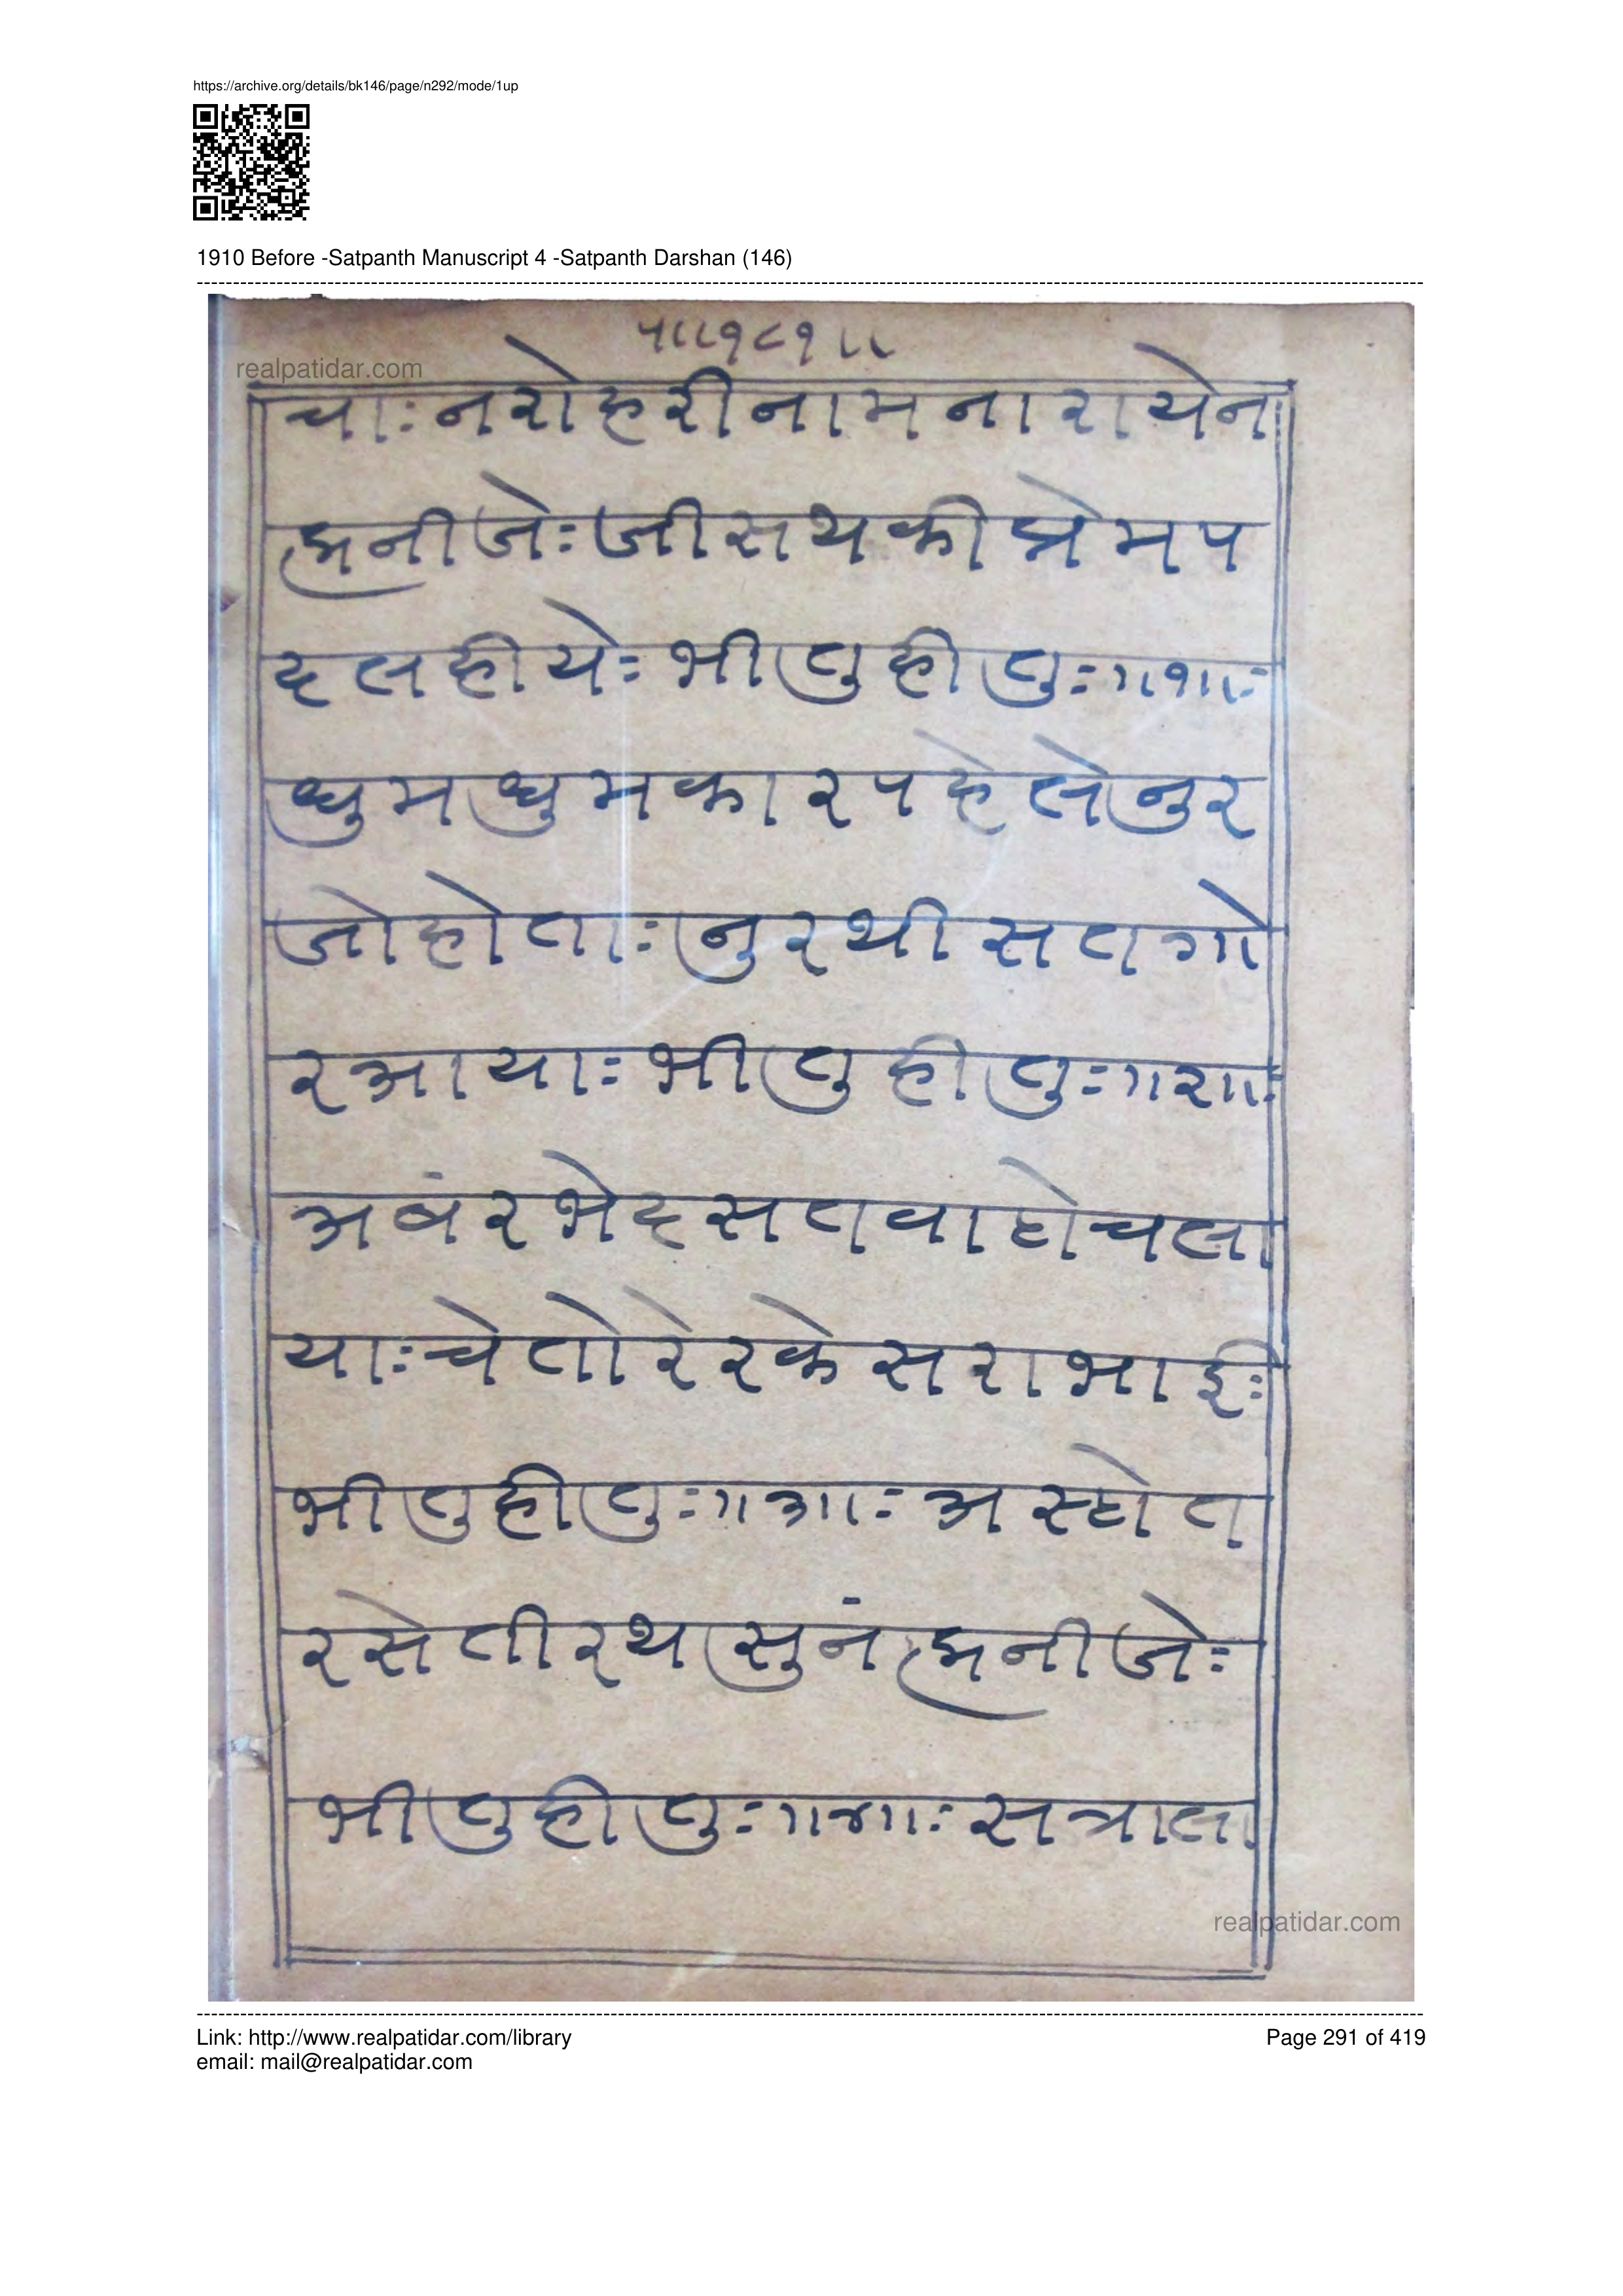 https://archive.org/details/bk146/page/n292/mode/1up
1910 Before -Satpanth Manuscript 4 -Satpanth Darshan (146)
realpatidar.com
प॥१८१॥
चाः नरोहरीनामनारायेन
भ्रनीजेः जीसथकीप्रेमप
दलहीयेः भीतुहीतुः॥१॥ः
धुमधुमकारपहेलेनुर
जोहोताः नुरथीसतगो
रआयाः भीतुहीतुः॥२॥ः
अबंरभेदसतवाहोचला
याः चेतोरेरकेसराभाईः
भीतुहीतुः॥३॥ः अस्होत
रसेतीरथसुनंभ्रनीजेः
भीतुहीतुः॥४॥ः सत्राला
realpatidar.com
Link: http://www.realpatidar.com/library
Page 291 of 419
email: mail@realpatidar.com